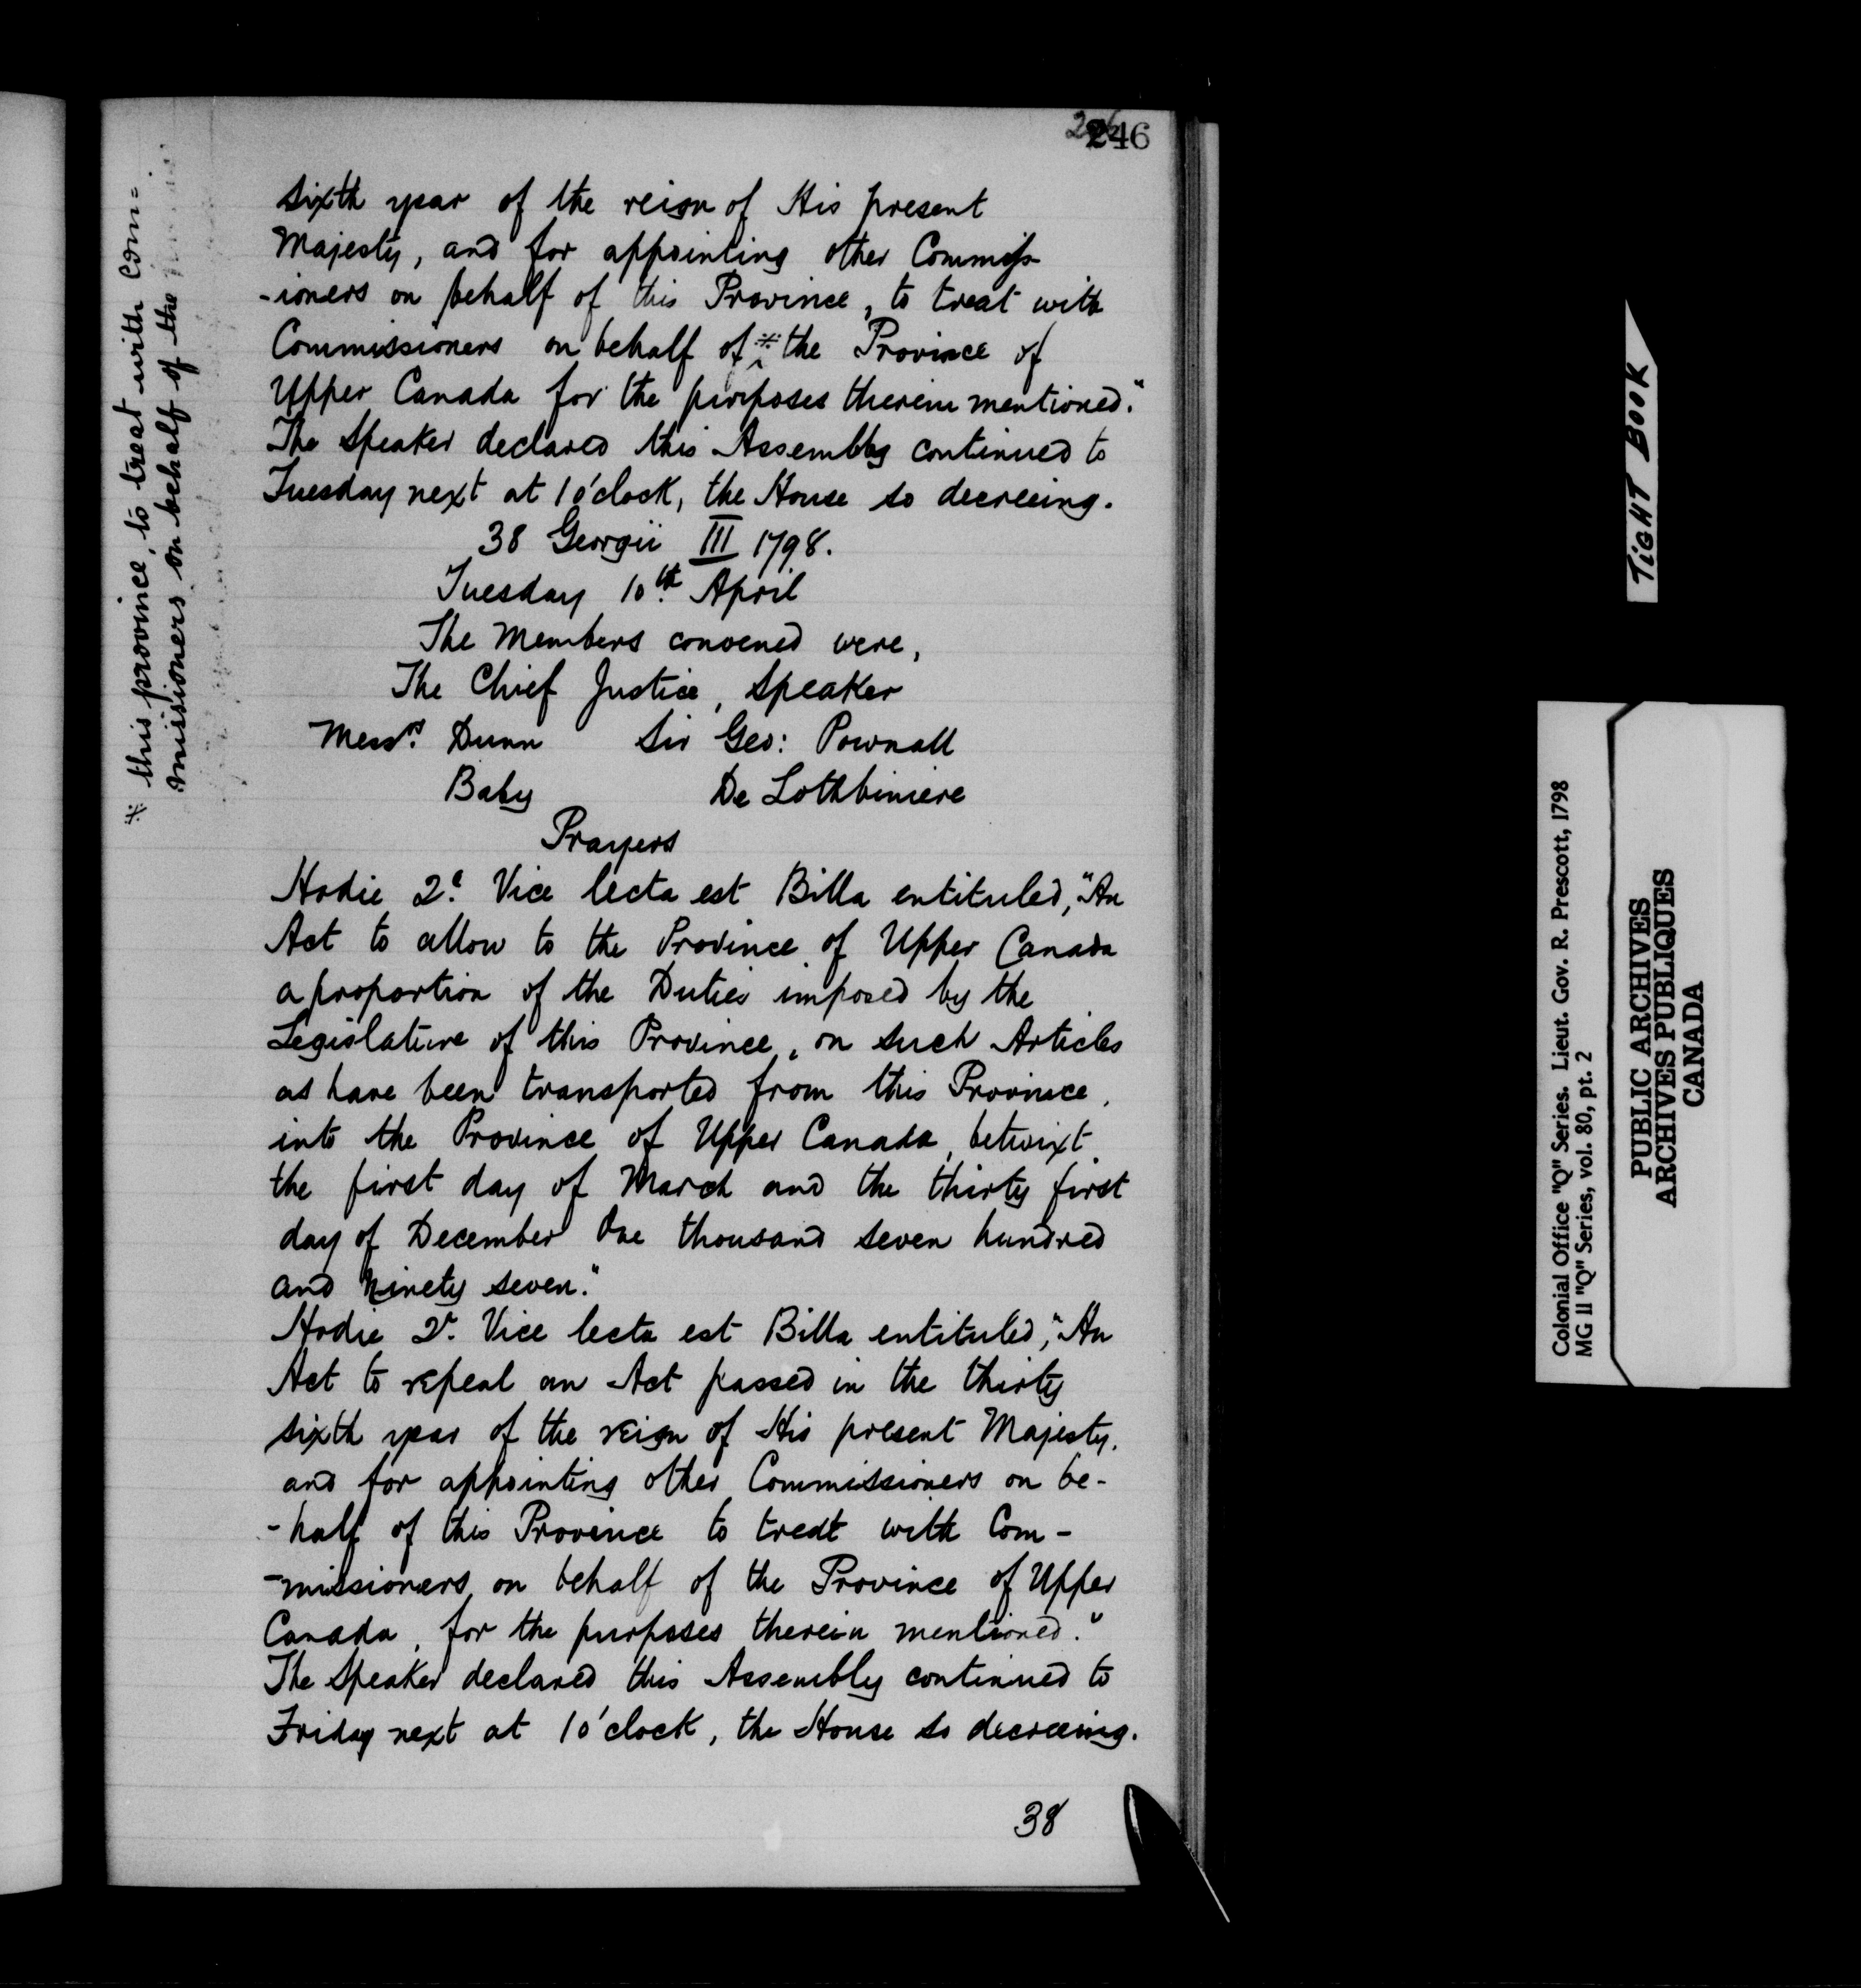 246
sixth year of the reign of His present
Majesty, and for appointing other Commiss
-ioners on behalf of this Province, to treat with
Commissioners on behalf of * the Province of
Upper Canada for the purposes therein mentioned."
The Speaker declared this Assembly continued to
Tuesday next at 1 o'clock, the House so decreeing.
38 Georgii III 1798.
Tuesday 10th April
The Members convened were,
The Chief Justice, Speaker
Messrs. Dunn Sir Geo: Pownall
Baby De Lothbiniere
Prayers
Hodie 2a. Vice lecta est Billa entituled, "An
Act to allow to the Province of Upper Canada
a proportion of the Duties imposed by the
Legislature of this Province, on such Articles
as have been transported from this Province,
into the Province of Upper Canada, betwixt
the first day of March and the thirty first
day of December One thousand seven hundred
and Ninety seven."
Hodie 2a. Vice lecta est Billa entituled, "An
Act to repeal an Act passed in the thirty
sixth year of the reign of His present Majesty,
and for appointing other Commissioners on be-
-half of this Province to treat with Com-
-missioners on behalf of the Province of Upper
Canada, for the purposes therein mentioned."
The Speaker declared this Assembly continued to
Friday next at 1 o'clock, the House so decreeing.
38
* this province, to treat with Com=
missioners on behalf of the
TIGHT BOOK
Colonial Office "Q" Series. Lieut. Gov. R. Prescott, 1798
MG II "Q" Series, vol. 80, pt. 2
PUBLIC ARCHIVES
ARCHIVES PUBLIQUES
CANADA